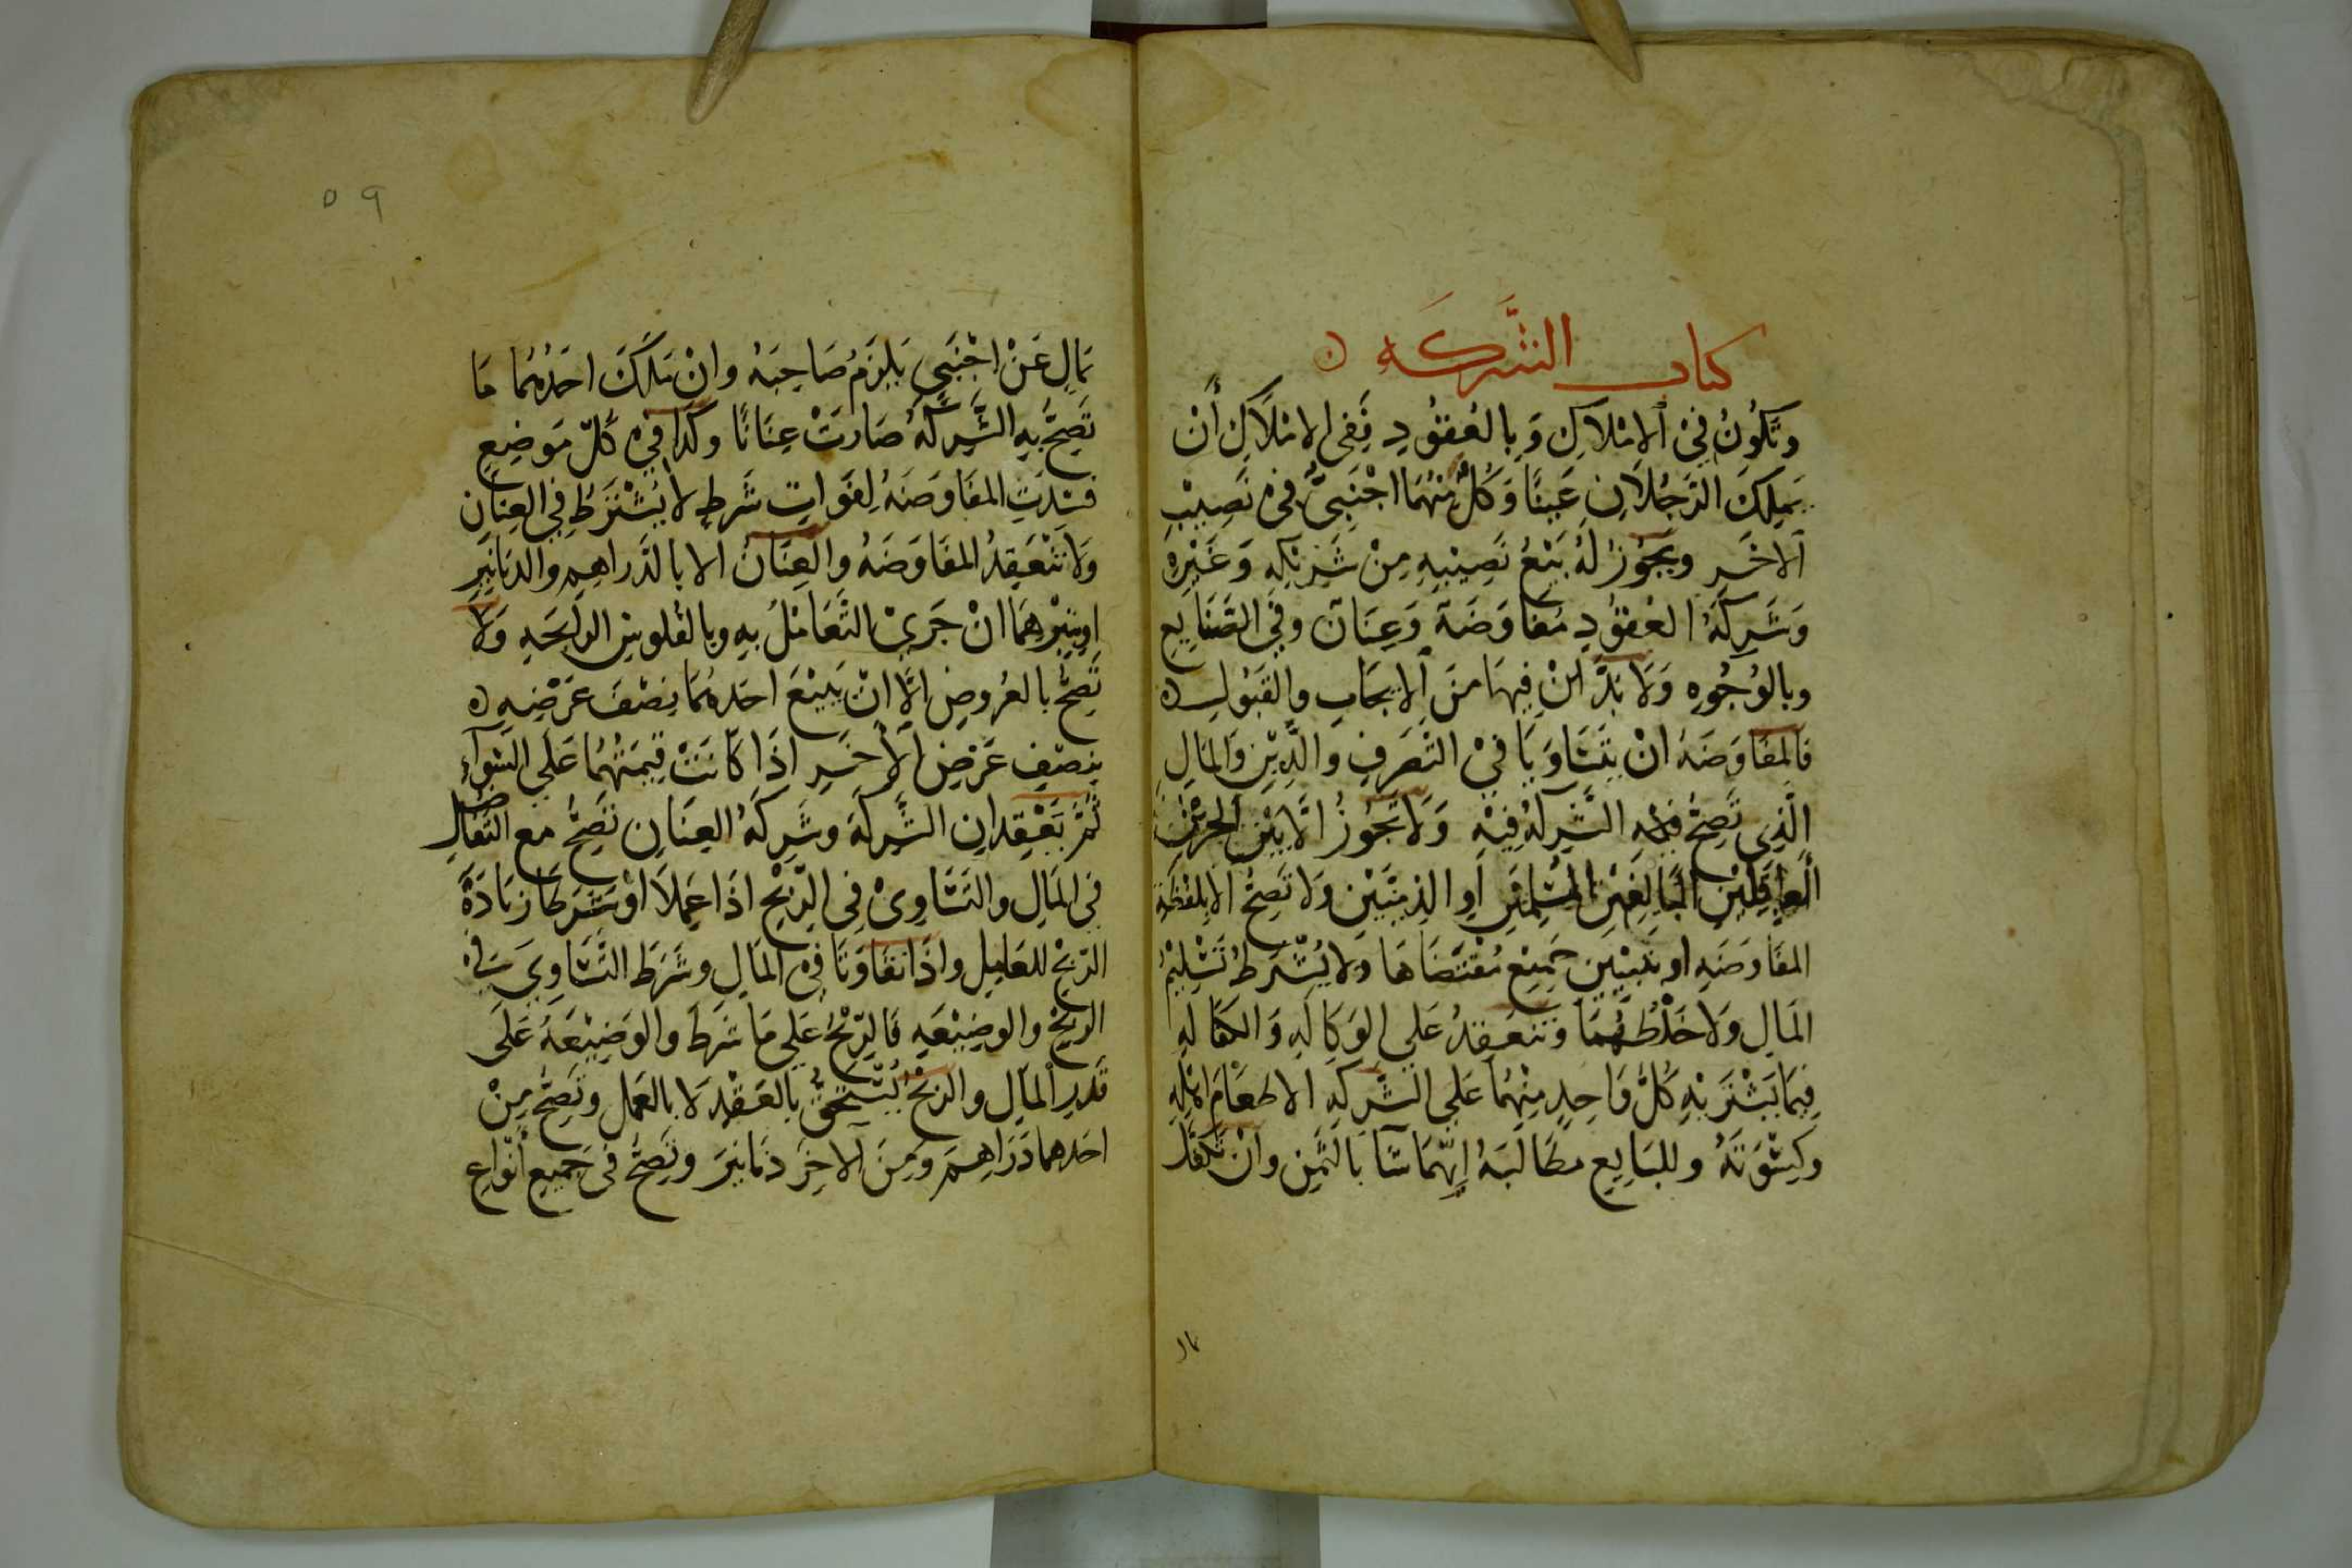 كتاب الشَّركَه ن
وتَكُونُ فِيْ الاملاكِ وَبالعُقُودِ فَفِى الامْلَاكِ أَنْ
يَملِكَ الرَّجُلَانِ عَينًا وَكُلٌّ مِنْهُمَا اجْنَبِىٌّ فى نَصِيْبِ
الاخَرِ ويَجُوْزُ لهُ بَيْعُ نَصِيْبِهِ مِنْ شَرِيْكِهِ وَغَيْرِهِ
وَشَرِكَةُ العُقُوْدِ مُفَاوَضَة وَعِنَان وفي الصَّنَايِعِ
وبالوُجُوِهِ وَلَا بُدَّ لِنْ فِيهَا مِنَ الايجَابِ والقَبُولِ ن
فَالمفَاوَضَهُ انْ يَتَسَاوَيَا فيْ التَّصَرفِ والدِّيْنِ وَالمَالِ
الَّذِى تَصِحُّ به الشَّرِكَهُ فِيْهِ وَلَا تَجُوزُ الَّا بَيْنَ الحرَّيْنِ
العَاقِلَيْنِ البَالِغَيْنِ المسُلمَيْنِ اَوِ الذِميَّيْنِ وَلا تَصِحُّ الا بِلَفْظَةِ
المفَاوَضَهِ او تَبْيِيْنِ جَمِيْعِ مُقْتَضَاهَا وَلا يُشْتَرطُ تَسْلِيْمُ
المَالِ وَلا خَلْطُهُمَا وَتَنعَقِدُ عَلي الوَكَالَهِ وَالكَفَالَهِ
فِيمَا يَشْتَرِيْهِ كُلُّ وَاحِدٍ مِنْهُمَا عَلَي الشَّرِكَهِ الا طعَامَ اهْلِهِ
وكِسْوَتَهُ وللبَايِعِ مطَالَبَهُ ايِّهمَا شَآ بالثَّمَنِ وانْ تَكَفَّلَ
بمَالٍ عَنْ اجْنَبي يَلزَمُ صَاحِبَهُ وانْ مَلَكَ احَدُهُمَا مَا
تَصِحُّ بِهِ الشَّرِكَهُ صَارَتْ عِنَانًا وكَذَا فِي كُلّ مَوضِعٍ
فَسَدَتِ المفَاوَضَهُ لِفَوَاتِ شَرطٍ لا يُشْتَرَطُ فِي العِنَانِ
وَلا تنْعَقِدُ المفَاوَضَهُ وَالعِنَان الا بالدَّراهِمِ والدنَانِيْرِ
او تِبْرهمَا انْ جَرَيْ التَّعَامُلُ بِهِ وبالفُلوسِ الرايحَهِ وَلا
تَصِحُّ بالعُروضِ الَّا انْ يَبِيْعَ احَدهُمَا نِصْفَ عَرْضِهِ ن
بنِصْفِ عَرْضِ الاخَرِ اذَا كَانَتْ قِيمَتُهُمَا عَلَي السَّوَآءِ
ثُمَّ يَعْقِدانِ الشَّرِكَهَ وشَرِكَهُ العِنَانِ تَصِحُّ مع التَّفاضل
في المَالِ والتَسَاوِيْ فِي الرِّبْحِ اذَا عَمِلَا اوْ شَرَطَا زيَادَةَ
الرّبْحِ للعَامِلِ واذَا تفَاوَتَا فِي المَالِ وشَرَط التَّسَاوِي فِي
الربْحِ والوضِيْعَهِ فَالرِّبْحُ عَلي مَا شَرَط والوَضِيْعَهُ عَلَى
قَدرِ المَالِ والربْحُ يُسْتَحَقُّ بالعَقْدِ لا بالعَمَلِ وتَصِحُّ مِنْ
احَدهمَا دَرَاهِمَ وَمِنَ الاخِرَ دَنانيرَ وتَصِحُّ فى جَميعِ أنْوَاعِ
٥٩